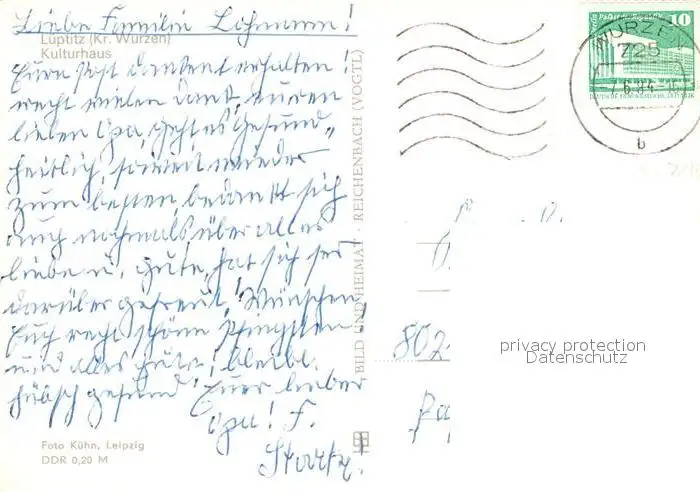 Liebe Familie Lohmann!
Lüptitz (Kr. Wurzen)
Kulturhaus
Eure Post dankent erhalten!
recht vielen Dank, euren
lieben Opa, geht es Gesund-
heitlich, soweit wieder
zum besten, bedankt sich
auch nochmals, über alles
liebe u. gute, hat sich ser
darüber gefreut! Wünschen
Euch recht schöne Pfingsten
und alles gute! bleibt
hübsch gesund! Euer lieber
Opa! F.
Foto Kühn, Leipzig
DDR 0,20 M
BILD UND HEIMAT · REICHENBACH (VOGTL)
10
WURZEN
725
7.6.84-15
b
802
privacy protection
Datenschutz